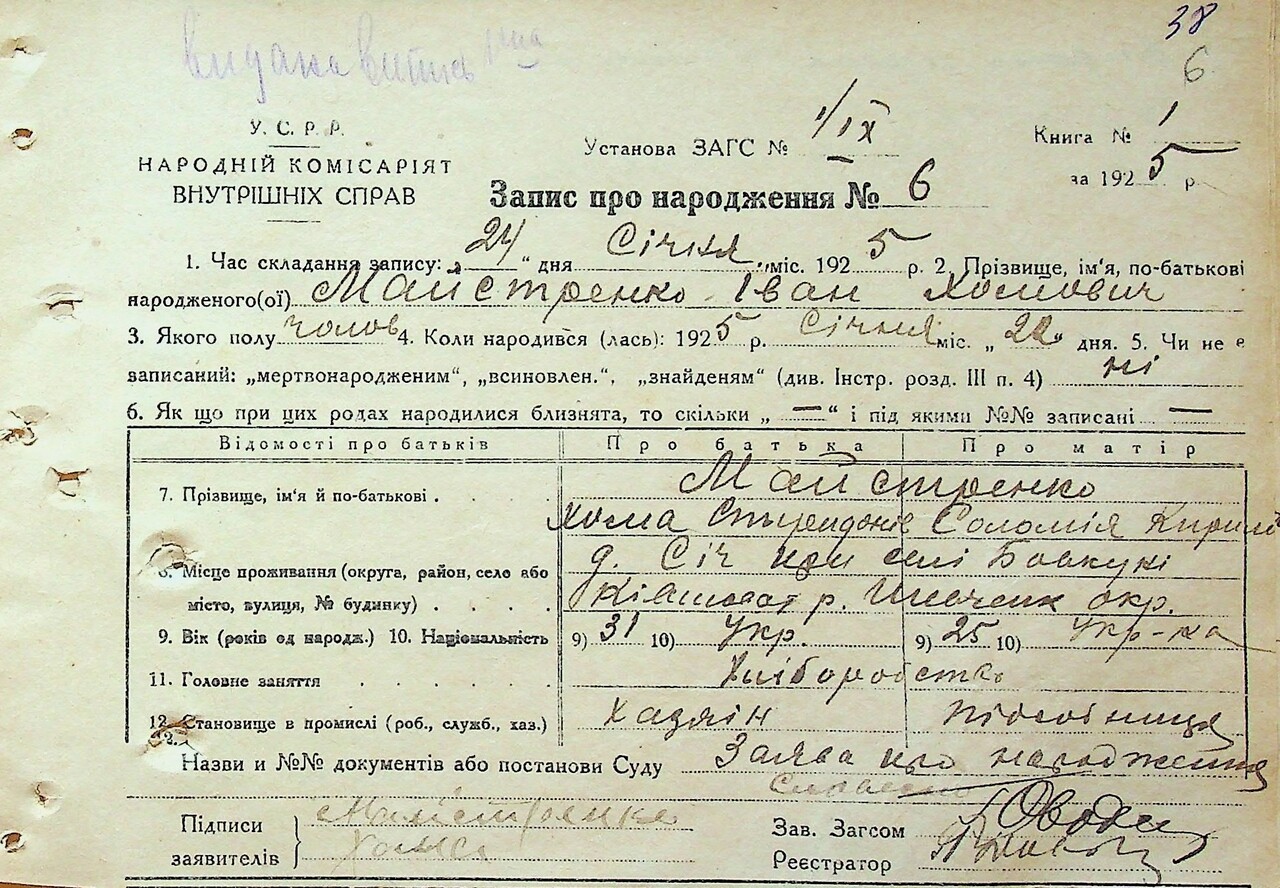 38
6
видана витись
У. С. Р. Р.
НАРОДНІЙ КОМІСАРІЯТ
ВНУТРІШНІХ СПРАВ
Установа ЗАГС № 1/IX
Книга № 1
за 1925 р.
Запис про народження № 6
1. Час складання запису: „24“ дня Січня міс. 1925 р. 2. Прізвище, ім'я, по-батькові
народженого(ої) Майстренко Іван Хомович
3. Якого полу чолов 4. Коли народився (лась): 1925 р. Січня міс. „22“ дня. 5. Чи не є
записаний: „мертвонародженим“, „всиновлен.“, „знайденям“ (див. Інстр. розд. III п. 4) ні
6. Як що при цих родах народилися близнята, то скільки „—“ і під якими №№ записані —
Відомості про батьків Про батька Про матір
7. Прізвище, ім'я й по-батькові . Майстренко
Хома Соломія Кирило
8. Місце проживання (округа, район, село або д. Січ при селі
місто, вулиця, № будинку) р. окр.
9. Вік (років од народж.) 10. Національність 9) 31 10) Укр. 9) 25 10) Укр-ка
11. Головне заняття Хліборобство
12. Становище в промислі (роб., служб., хаз.) Хазяїн підсобниця
Назви и №№ документів або постанови Суду Заява про народження
Підписи
заявителів
Майстренко
Хома
Зав. Загсом
Реєстратор